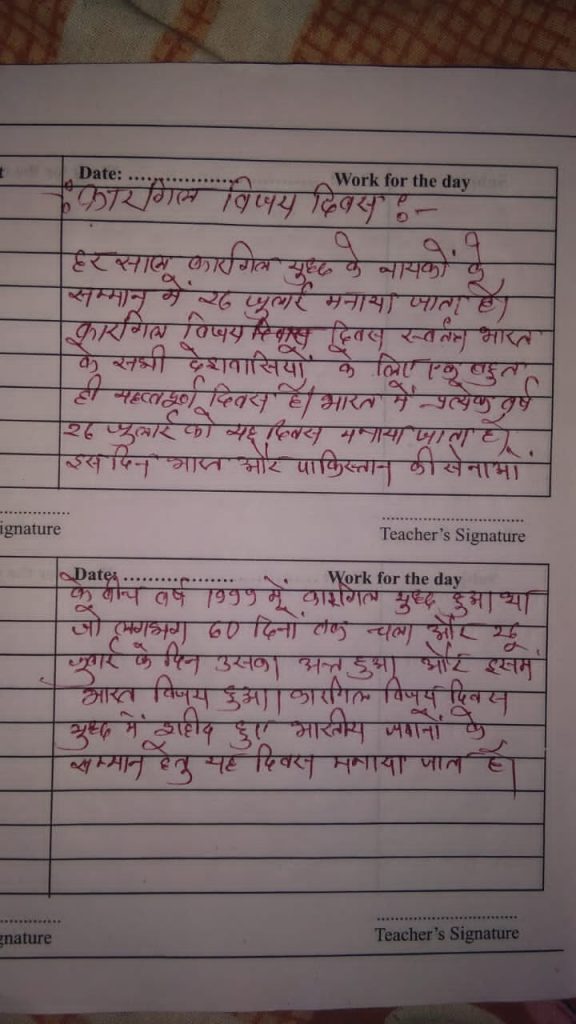 t
Date: ....................
Work for the day
-:कारगिल विजय दिवस :-
हर साल कारगिल युद्ध के नायकों के
सम्मान में २६ जुलाई मनाया जाता है।
कारगिल विजय दिवस दिवस स्वतंत्र भारत
के सभी देशवासियों के लिए एक बहुत
ही महत्वपूर्ण दिवस है। भारत में प्रत्येक वर्ष
२६ जुलाई को यह दिवस मनाया जाता है।
इस दिन भारत और पाकिस्तान की सेनाओं
ignature
Teacher's Signature
Date: ....................
Work for the day
के बीच वर्ष 1999 में कारगिल युद्ध हुआ था
जो लगभग 60 दिनों तक चला और २६
जुलाई के दिन उसका अन्त हुआ और इसमें
भारत विजय हुआ। कारगिल विजय दिवस
युद्ध में शहीद हुए भारतीय जवानों के
सम्मान हेतु यह दिवस मनाया जाता है।
gnature
Teacher's Signature